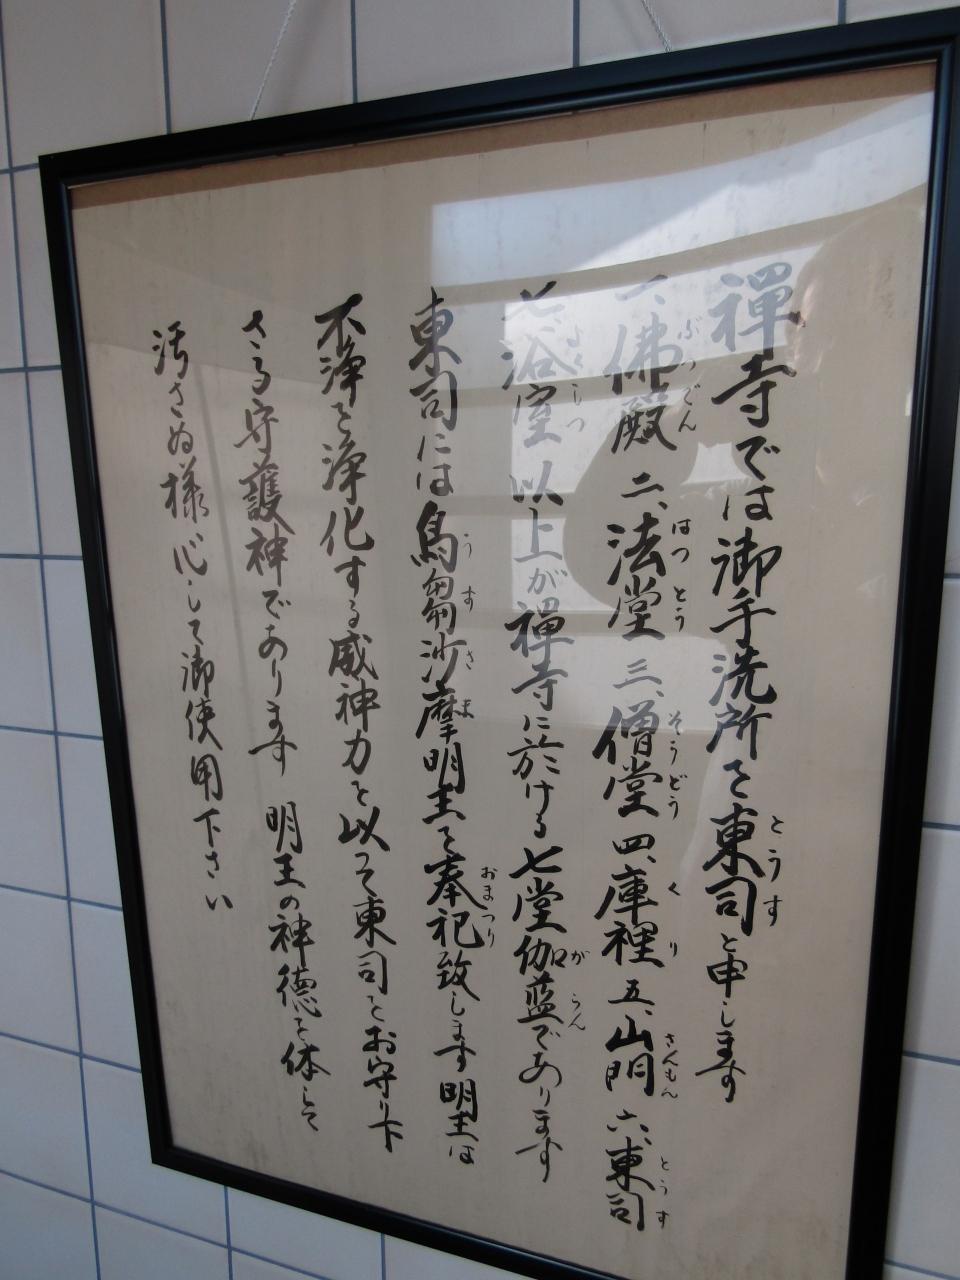 禪寺では御手洗所を東司と申します
とうす
一、佛殿 二、法堂 三、僧堂 四、庫裡 五、山門 六、東司
ぶつでん はつとう そうどう くり さんもん とうす
七、浴室 以上が禪寺に於ける七堂伽藍であります
よくしつ がらん
東司には烏芻沙摩明王を奉祀致します明王は
うすさま おまつり
不浄を浄化する威神力を以って東司をお守り下
さる守護神であります 明王の神德を体して
汚さぬ様心して御使用下さい